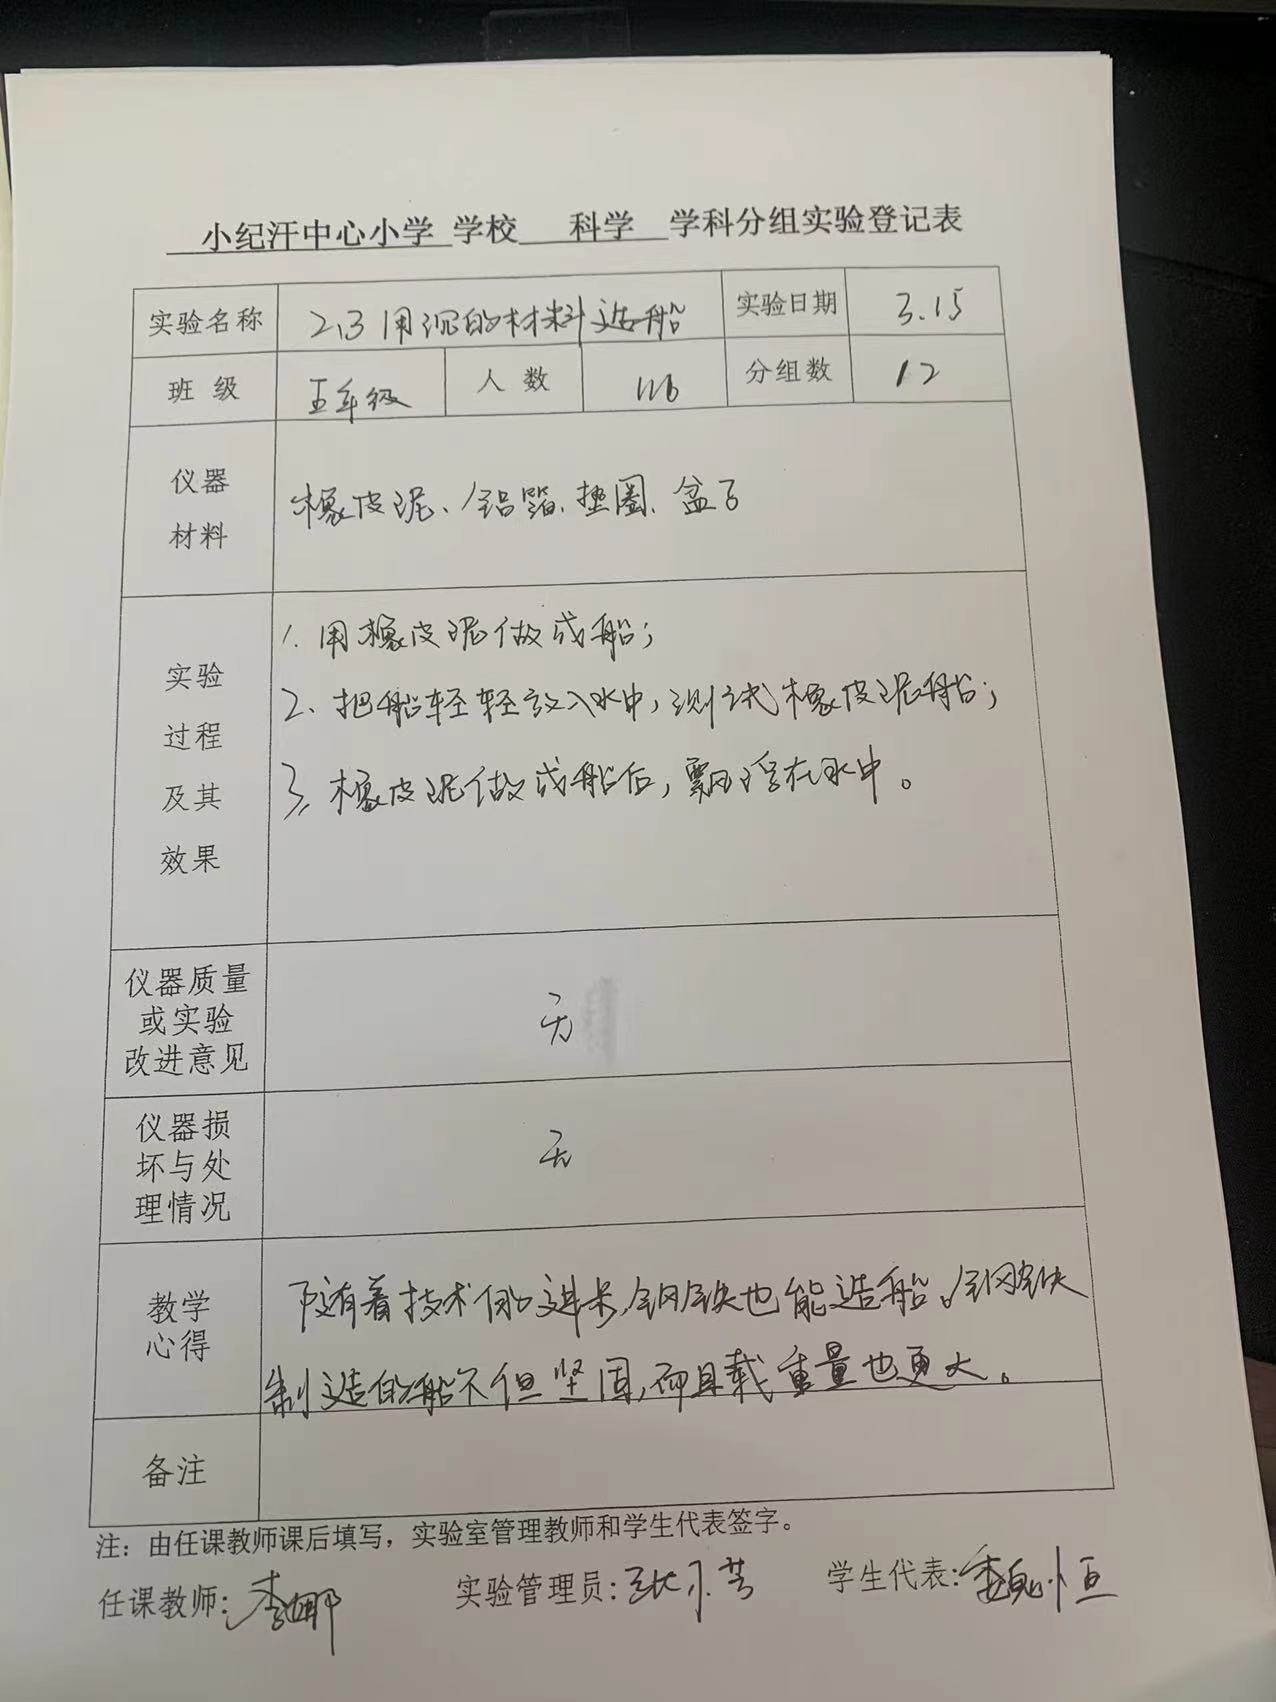 小纪汗中心小学 学校 科学 学科分组实验登记表
实验名称 2.3 用沉的材料造船 实验日期 3.15
班 级 五年级 人 数 116 分组数 12
仪器
材料
橡皮泥、铝箔、垫圈、盆子
实验
过程
及其
效果
1. 用橡皮泥做成船；
2、把船轻轻放入水中，测试橡皮泥船；
3、橡皮泥做成船后，飘浮在水中。
仪器质量
或实验
改进意见
无
仪器损
坏与处
理情况
无
教学
心得
随着技术的进步，钢铁也能造船。钢铁
制造的船不但坚固，而且载重量也更大。
备注
注：由任课教师课后填写，实验室管理教师和学生代表签字。
任课教师：李娜 实验管理员： 学生代表：